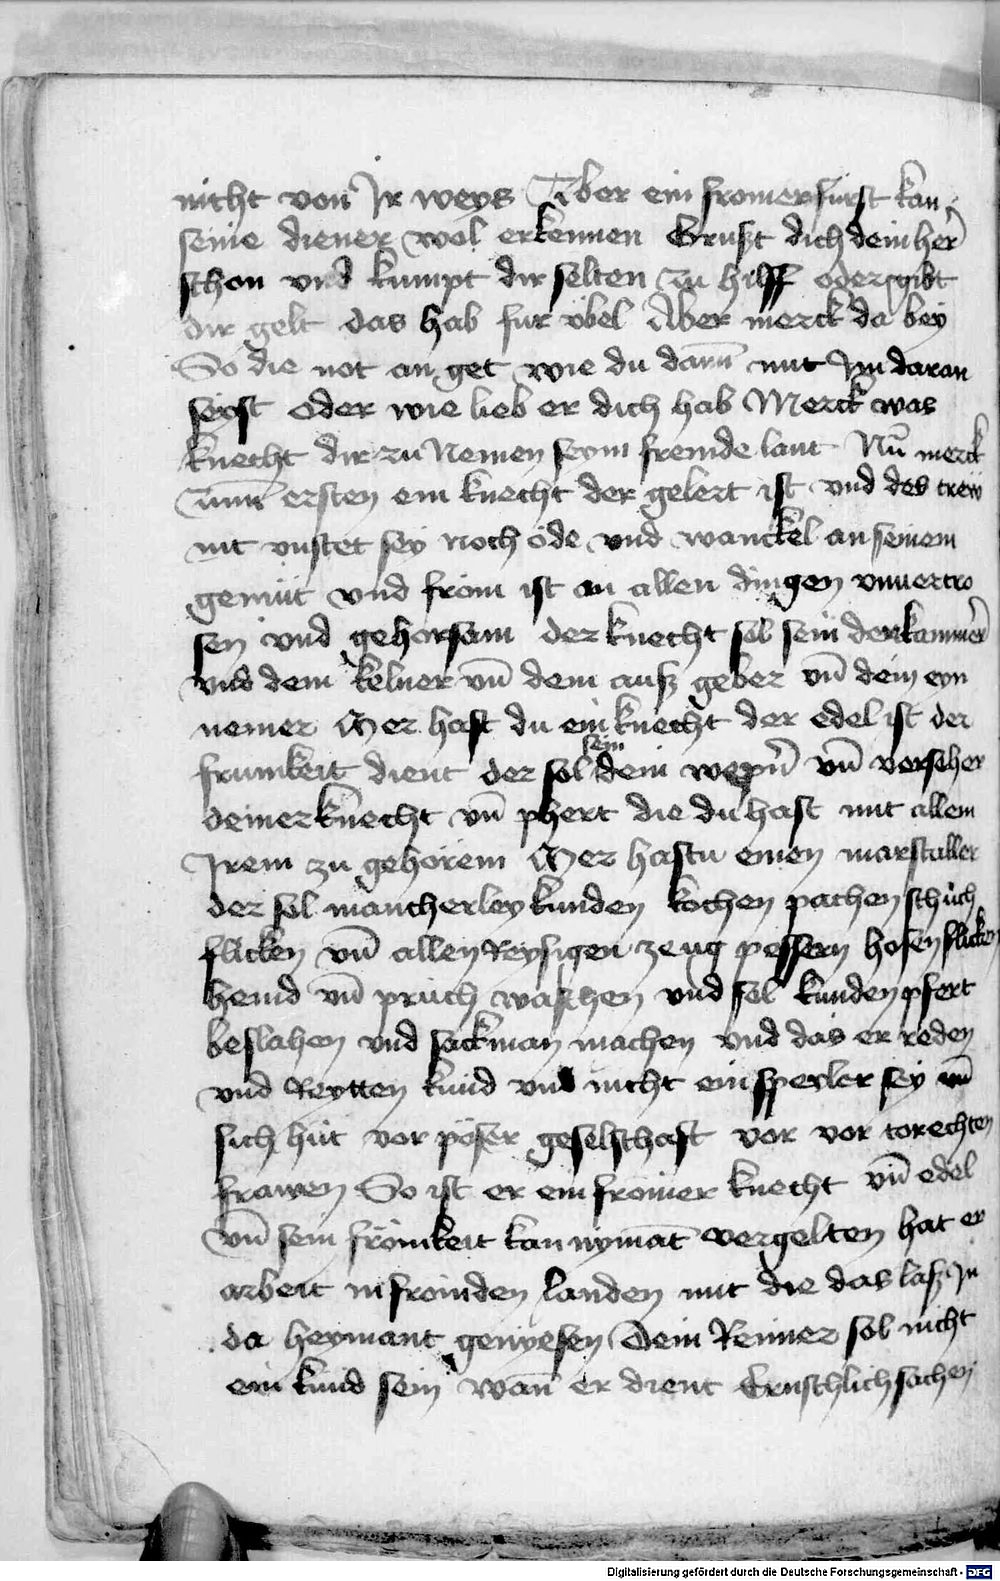 nicht von Jr weys Aber ein fromer furst kan
seine diener wol erkennen Grußt dich dein her̄
schon vnd kumpt dir selten zu hilff oder gibt
dir gelt das hab fur vbel Aber merck da bey
So die not an get wie du dann̄ mit Jm daran
seyst oder wie lieb er dich hab Merck was
knecht dir zu Nemen seyin fremde lant Nu̅ merck
zum̄ ersten ein knecht der gelert ist vnd des trew
nit vnstet sey noch öde vnd wanckel an seinem
gemüt vnd from ist an allen dingen vnuertro
sen vnd gehorsam der knecht sol sein der kammer̄
vnd dein kelner vn̄ dein auß geber vn̄ dein eyn
nemer Mer hast du ein knecht der edel ist der
frumkeit dient der sol sein dein wepn̄ vn̄ verseher
deiner knecht vn̄ phert die du hast mit allem
Jrem zu gehörem Mer hastu einen marstaller
der sol mancherley kunden kochen pachen schüch
flicken vn̄ allen Reysigen zeug pessern hosen flicken
hemd vn̄ prüch waschen vnd sol kunden pfert
beslahen vnd sackman machen vnd das er reden
vnd Reytten kund vnd nicht ein speyler sey vn̄
sich hüt vor pöser geselschaft vor vor torechten
frawen So ist er ein fromer knecht vn̄ edel
vn̄ sein frömkeit kan nyman̄t vergelten hat er
arbeit in fromden landen mit die das laß Jn
da heymant genyesen Dein Renner sol nicht
ein kind sein wan̄ er dient Ernschlich sachen
Digitalisierung gefördert durch die Deutsche Forschungsgemeinschaft - DFG